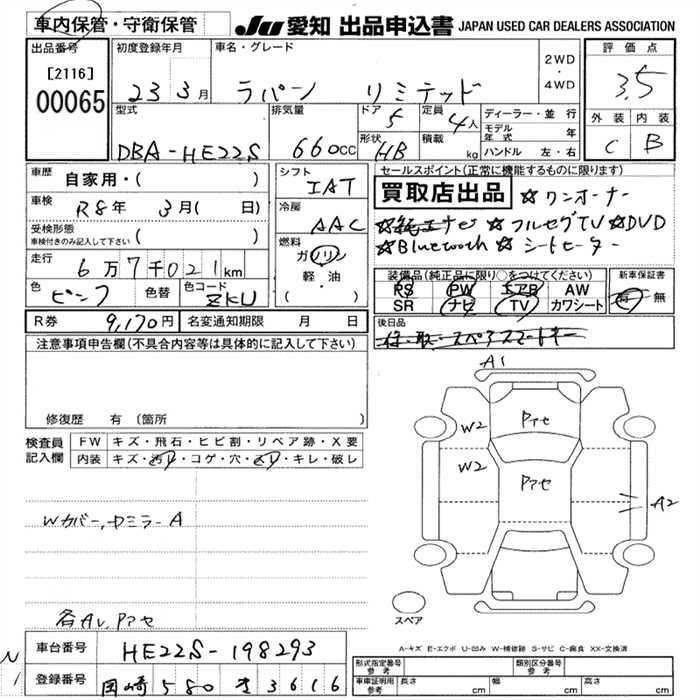 車内保管・守衛保管
JU 愛知 出品申込書 JAPAN USED CAR DEALERS ASSOCIATION
出品番号 [2116] 00065
初度登録年月 23 3月
車名・グレード ラパン リミテッド
2WD ・ 4WD
評価点 3.5
外装 C 内装 B
型式 DBA-HE22S
排気量 660cc
ドア 5 定員 4人
形状 HB 積載 kg
ディーラー・並行
モデル年式 年
ハンドル 左・右
車歴 自家用・( )
車検 R8年 3月( 日)
受検形態 車検付きのみ記入して下さい ( )
走行 6万7千021km
色 ピンク 色替 色コード ZKU
シフト IAT
冷房 AAC
燃料 ガソリン 軽・油 ( )
セールスポイント(正常に機能するものに限ります)
買取店出品 ☆ワンオーナー
☆純正ナビ ☆フルセグTV ☆DVD
☆Bluetooth ☆シートヒーター
装備品(純正品に限り○をつけてください) 新車保証書
PS PW エアB AW 有・無
SR ナビ TV カワシート
R券 9,170円 名変通知期限 月 日
後日品
注意事項申告欄(不具合内容等は具体的に記入して下さい)
修復歴 有 〔箇所 〕
検査員記入欄 FW キズ・飛石・ヒビ割・リペア跡・X要
内装 キズ・汚れ・コゲ・穴・スレ・キレ・破レ
A1
W2 Pアセ
W2 Pアセ
A2
Wカバー,ドミラーA
各AU,Pアセ
スペア
A-キズ E-エクボ U-凹み W-補修跡 S-サビ C-腐食 XX-交換済
車台番号 HE22S-198293
登録番号 岡崎 580 3616
形式指定番号 参考 類別区分番号 参考
車庫証明用 参考 長さ cm 幅 cm 高さ cm